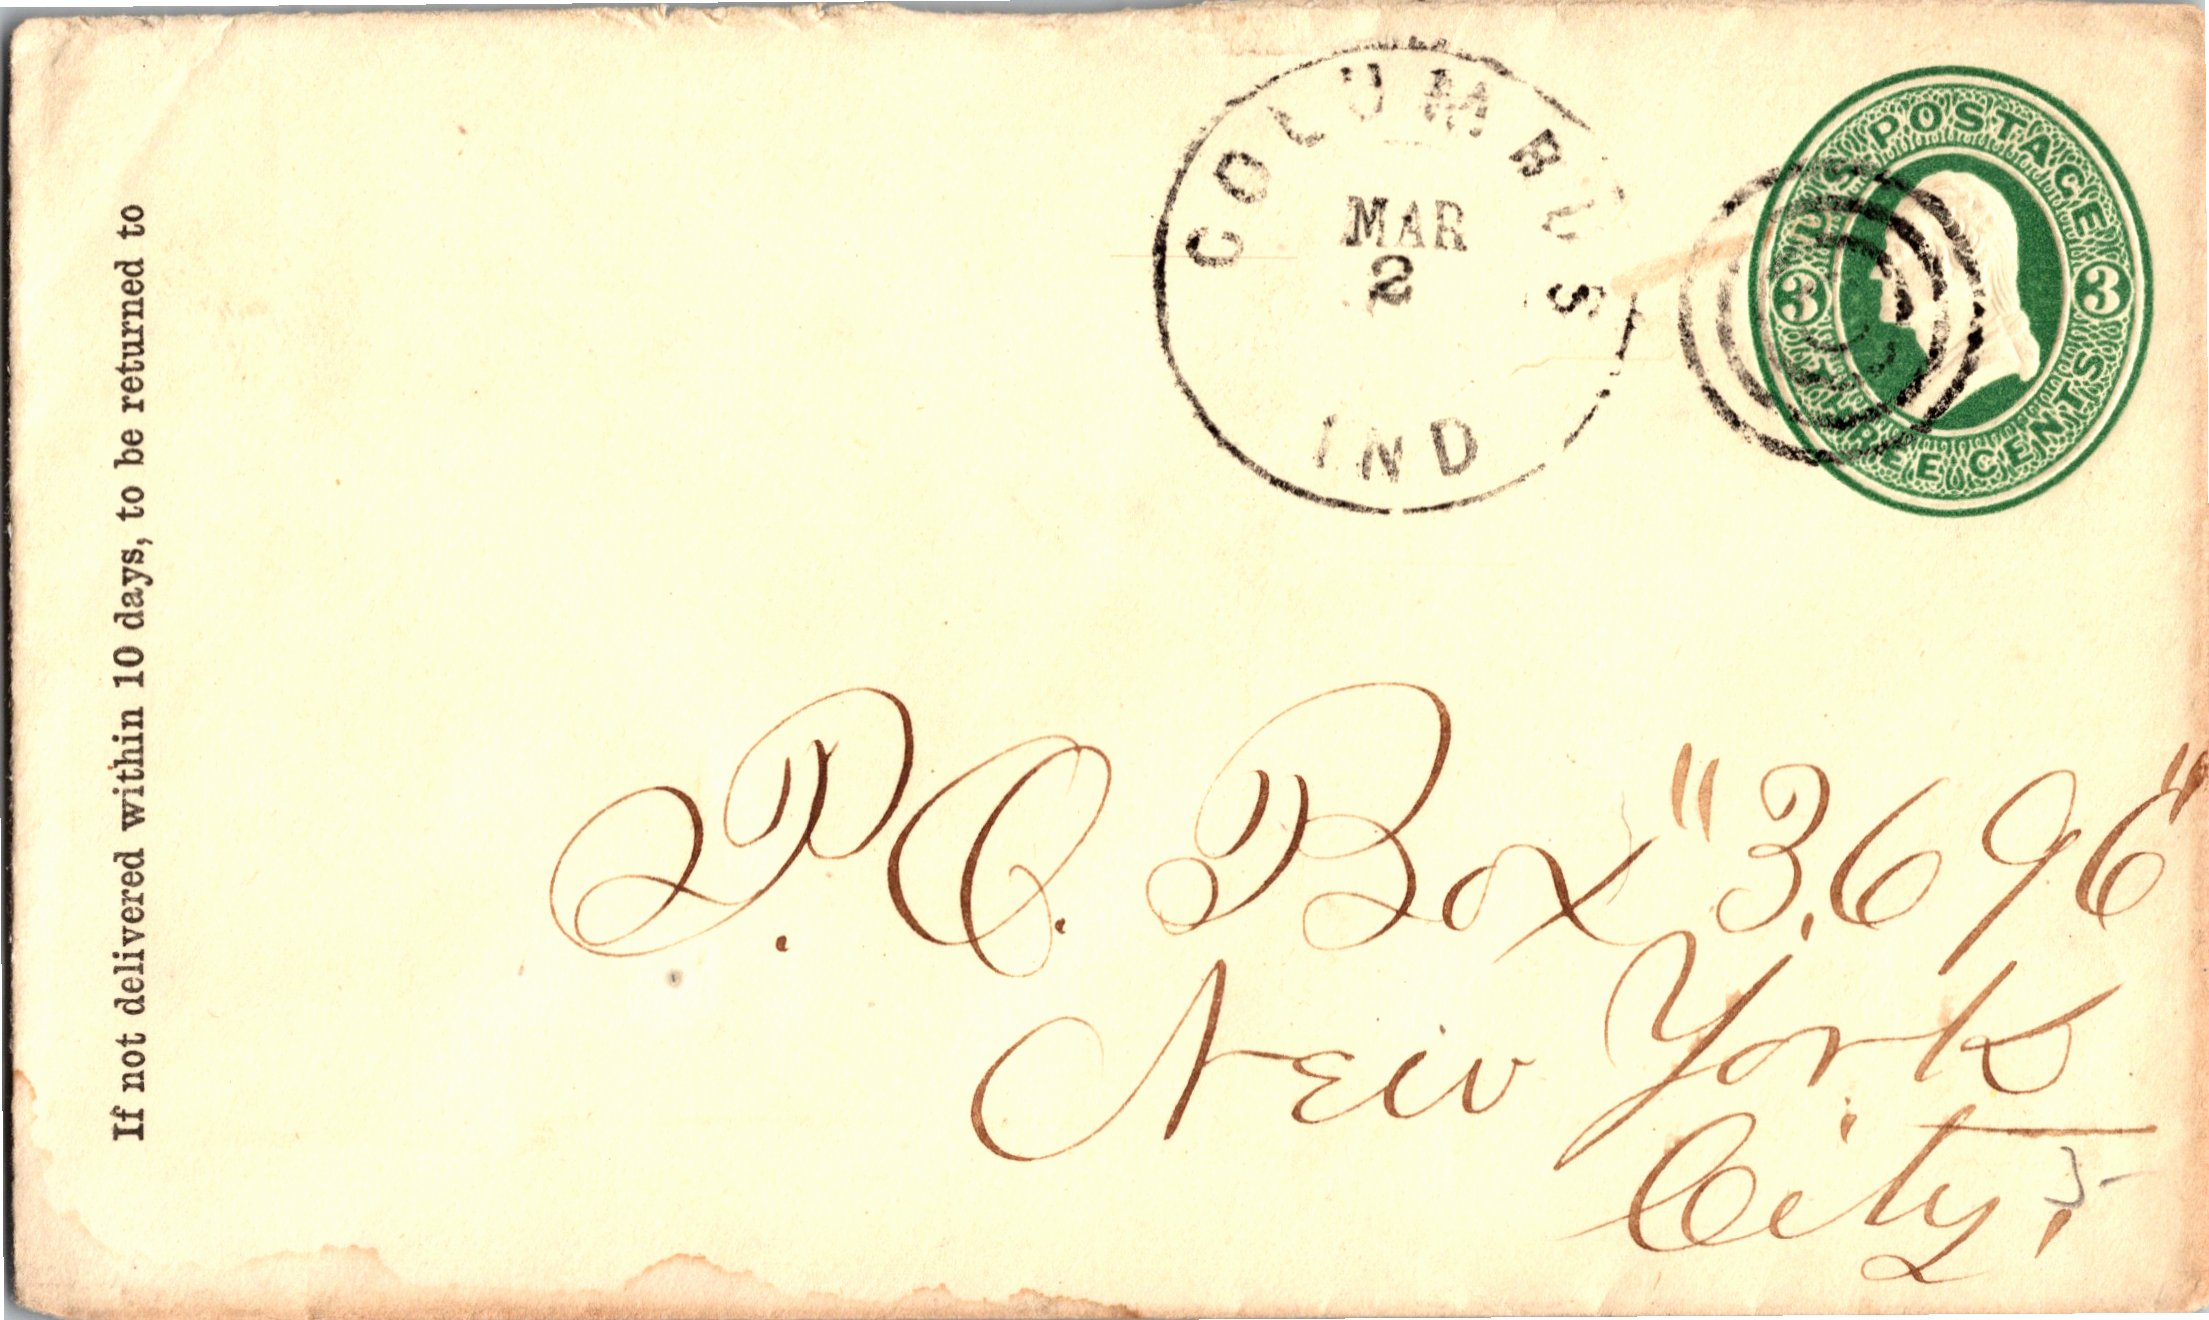 If not delivered within 10 days, to be returned to
COLUMBUS
MAR
2
IND
U.S. POSTAGE
3 3
THREE CENTS
P.O. Box "3696"
New York
City,
5-